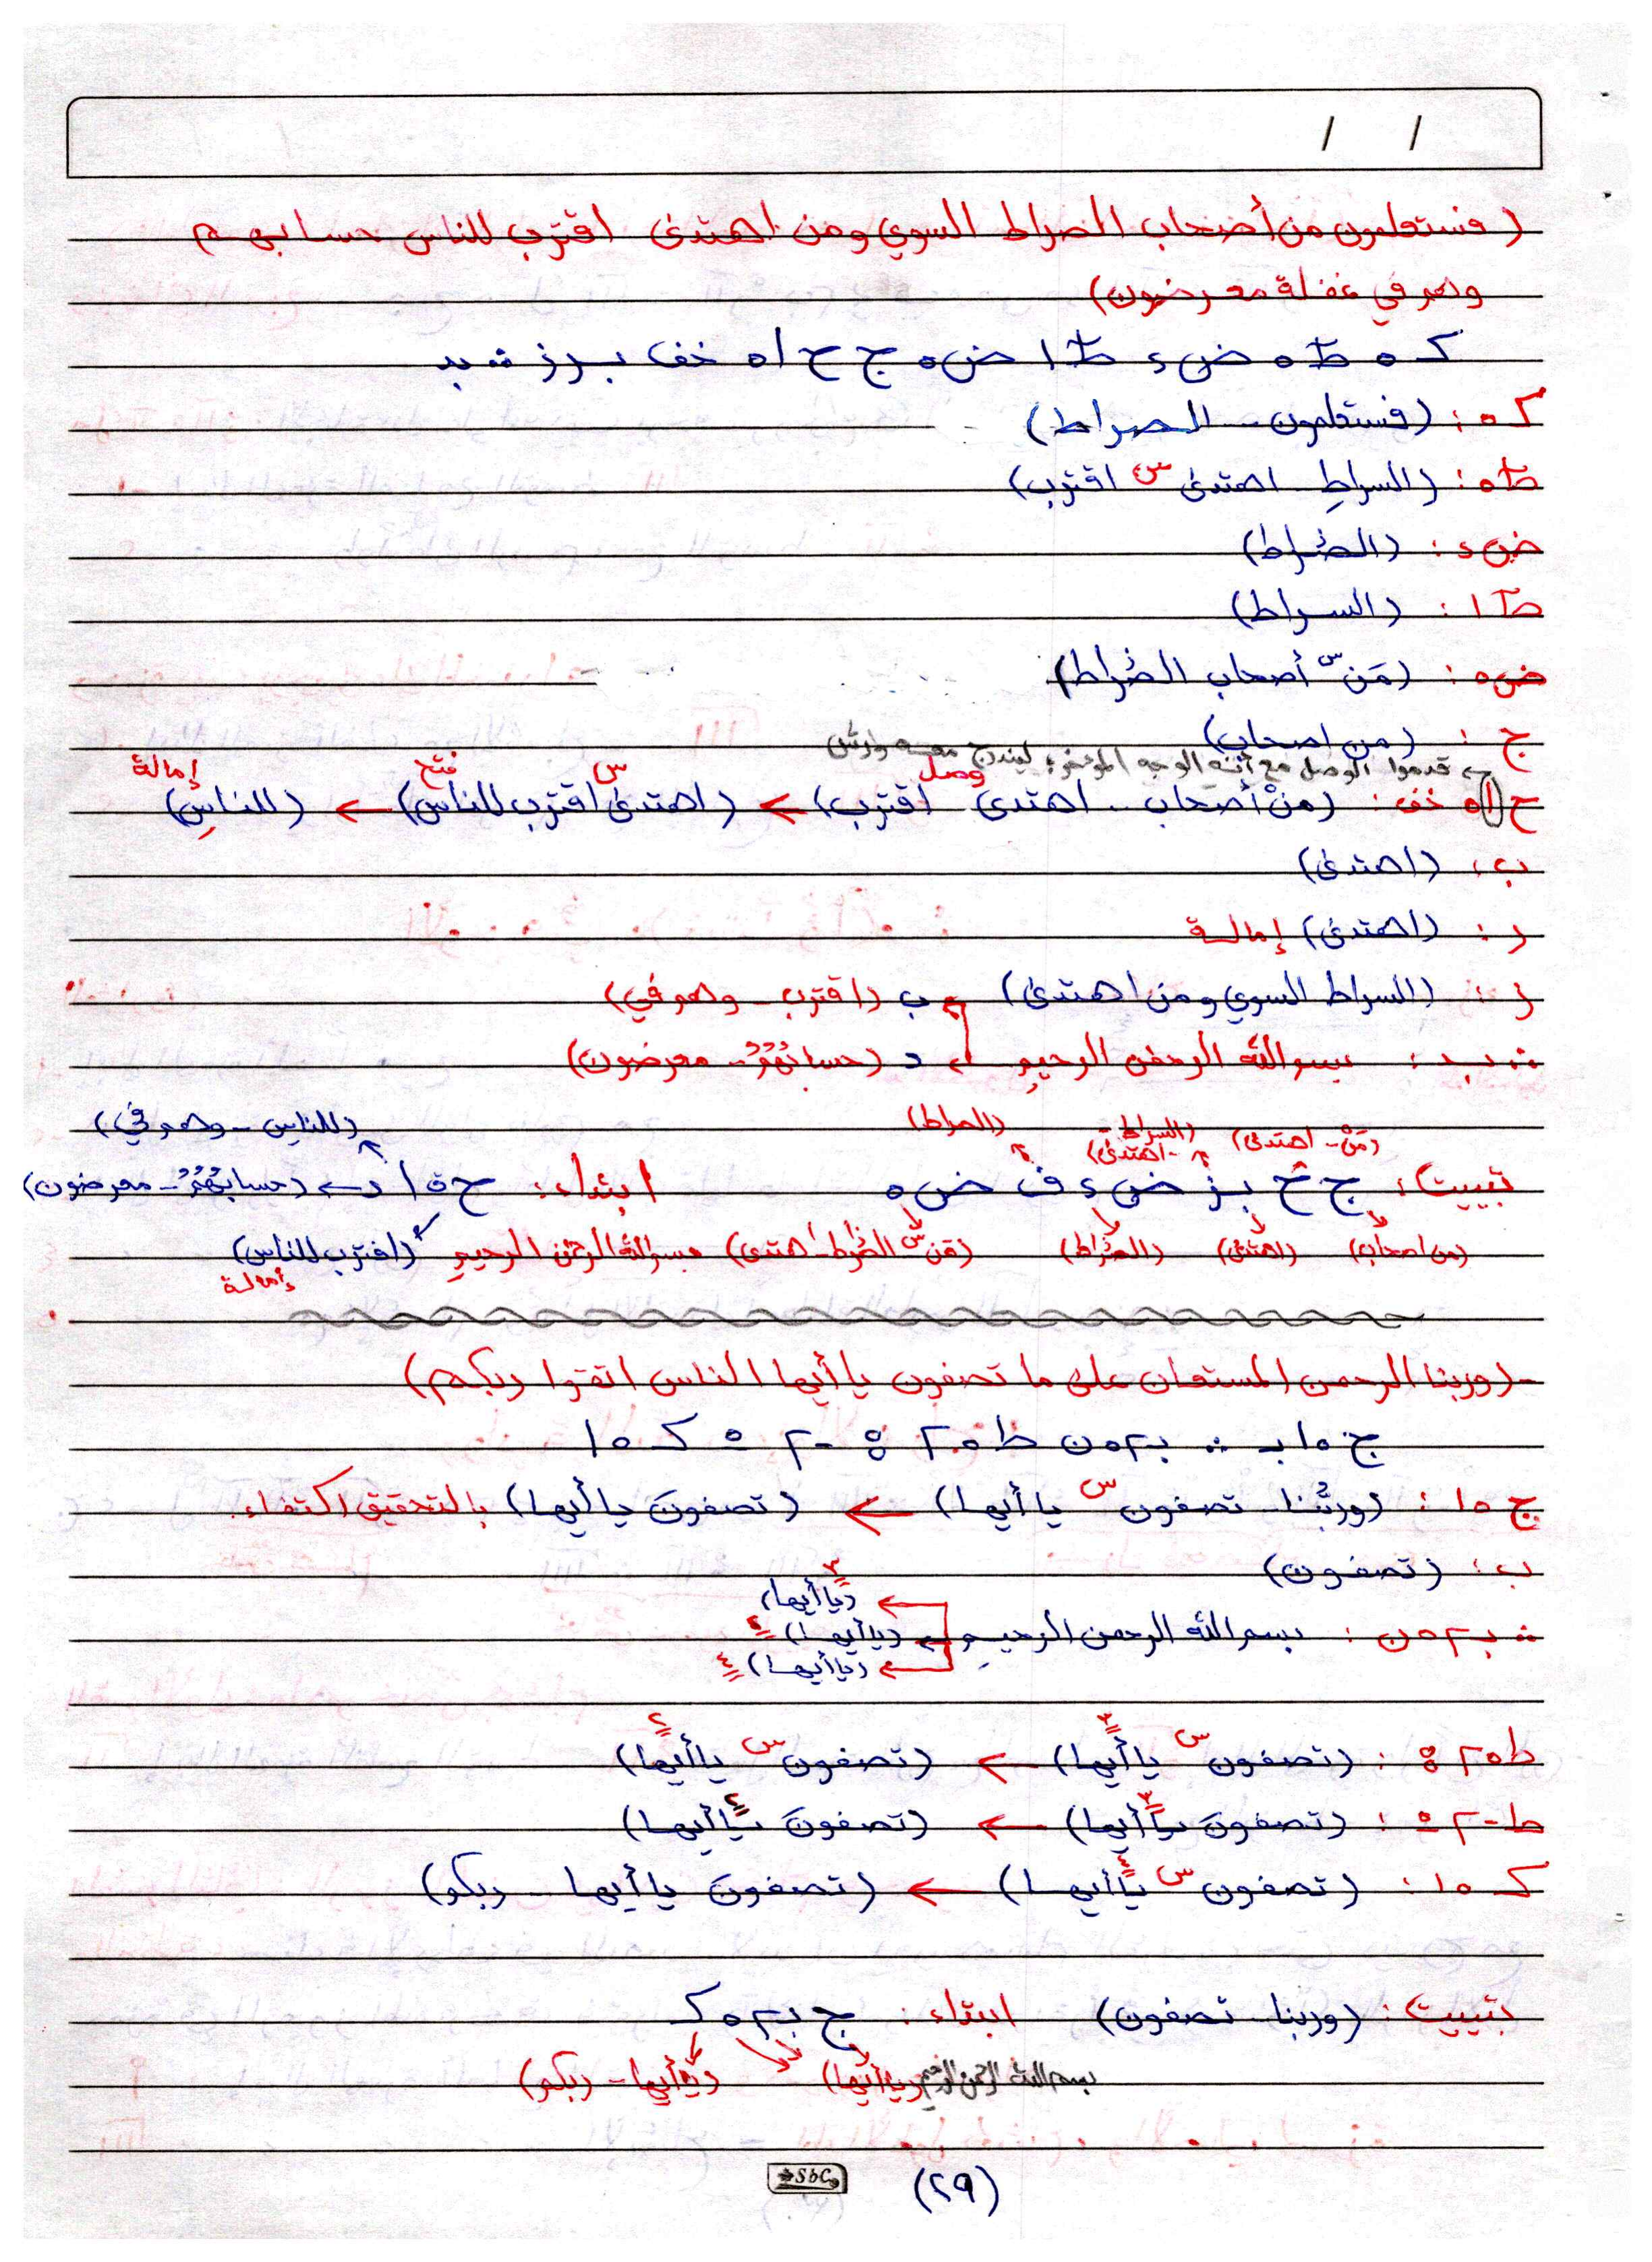 / /
(فستعلمون من أصحاب الصراط السوي ومن اهتدى اقترب للناس حسابهم
وهم في غفلة معرضون)
ك ه ط ه ض ء ط ا ض ه ج ح ا ه خف ب ر ز
ك ه : (فستعلمون - الصراط)
ط ه : (السراطِ - اهتدى س اقترب)
ض ء : (الصراط)
ط ا : (السراط)
ض ه : (مَن س أصحاب الصراط)
ج : (من اصحاب)
قدموا الوصل مع أنه الوجه المؤخر ليندرج معه ورش
ح ا ه خف : (منْ أصحاب - اهتدى وصل اقترب) ← (اهتدى س اقترب للناس) فتح ← (للناسِ) إمالة
ب : (اهتدى)
ر : (اهتدى) إمالة
ز : (السراط السوي ومن اهتدى) ب (اقترب - وهم في)
بسم الله الرحمن الرحيم د (حسابهمُ - معرضون)
(للناس - وهم في)
(الصراط)
(السراط - اهتدى)
(مَنْ - اهتدى)
تبييت : ج ح ب ز ض ء ف ض ه ابتداء : ح ه ا د ← (حسابهمُ - معرضون)
(من اصحاب) (اهتدى) (الصراط) (مَن س الصراط - اهتدى) بسم الله الرحمن الرحيم (اقترب للناس)
إمالة
- (وربنا الرحمن المستعان على ما تصفون يا أيها الناس اتقوا ربكم)
ج ه ا ب ∴ ب ٣ ه ن ط ه ٢ ه - ٢ ه ك ه ا
ج ه ا : (وربُّنا - تصفون س يا أيها) ← (تصفونَ يا أيها) بالتحقيق اكتفاء.
ب : (تصفون)
(يا أيها) ٣
∴ ب ٣ ه ن : بسم الله الرحمن الرحيم ← (يا أيها) ٢
← (يا أيها) ٤
ط ه ٢ ه : (تصفون س يا أيها) ٣ ← (تصفون س يا أيها) ٢
ط - ٢ ه : (تصفونَ يا أيها) ٣ ← (تصفونَ يا أيها) ٤
ك ه ا : (تصفون س يا أيها) ٤ ← (تصفونَ يا أيها - ربكم)
تبييت : (وربنا - تصفون) ابتداء : ج ب ٣ ه ك
بسم الله الرحمن الرحيم (يا أيها) (يا أيها - ربكم)
SbC
(٢٩)